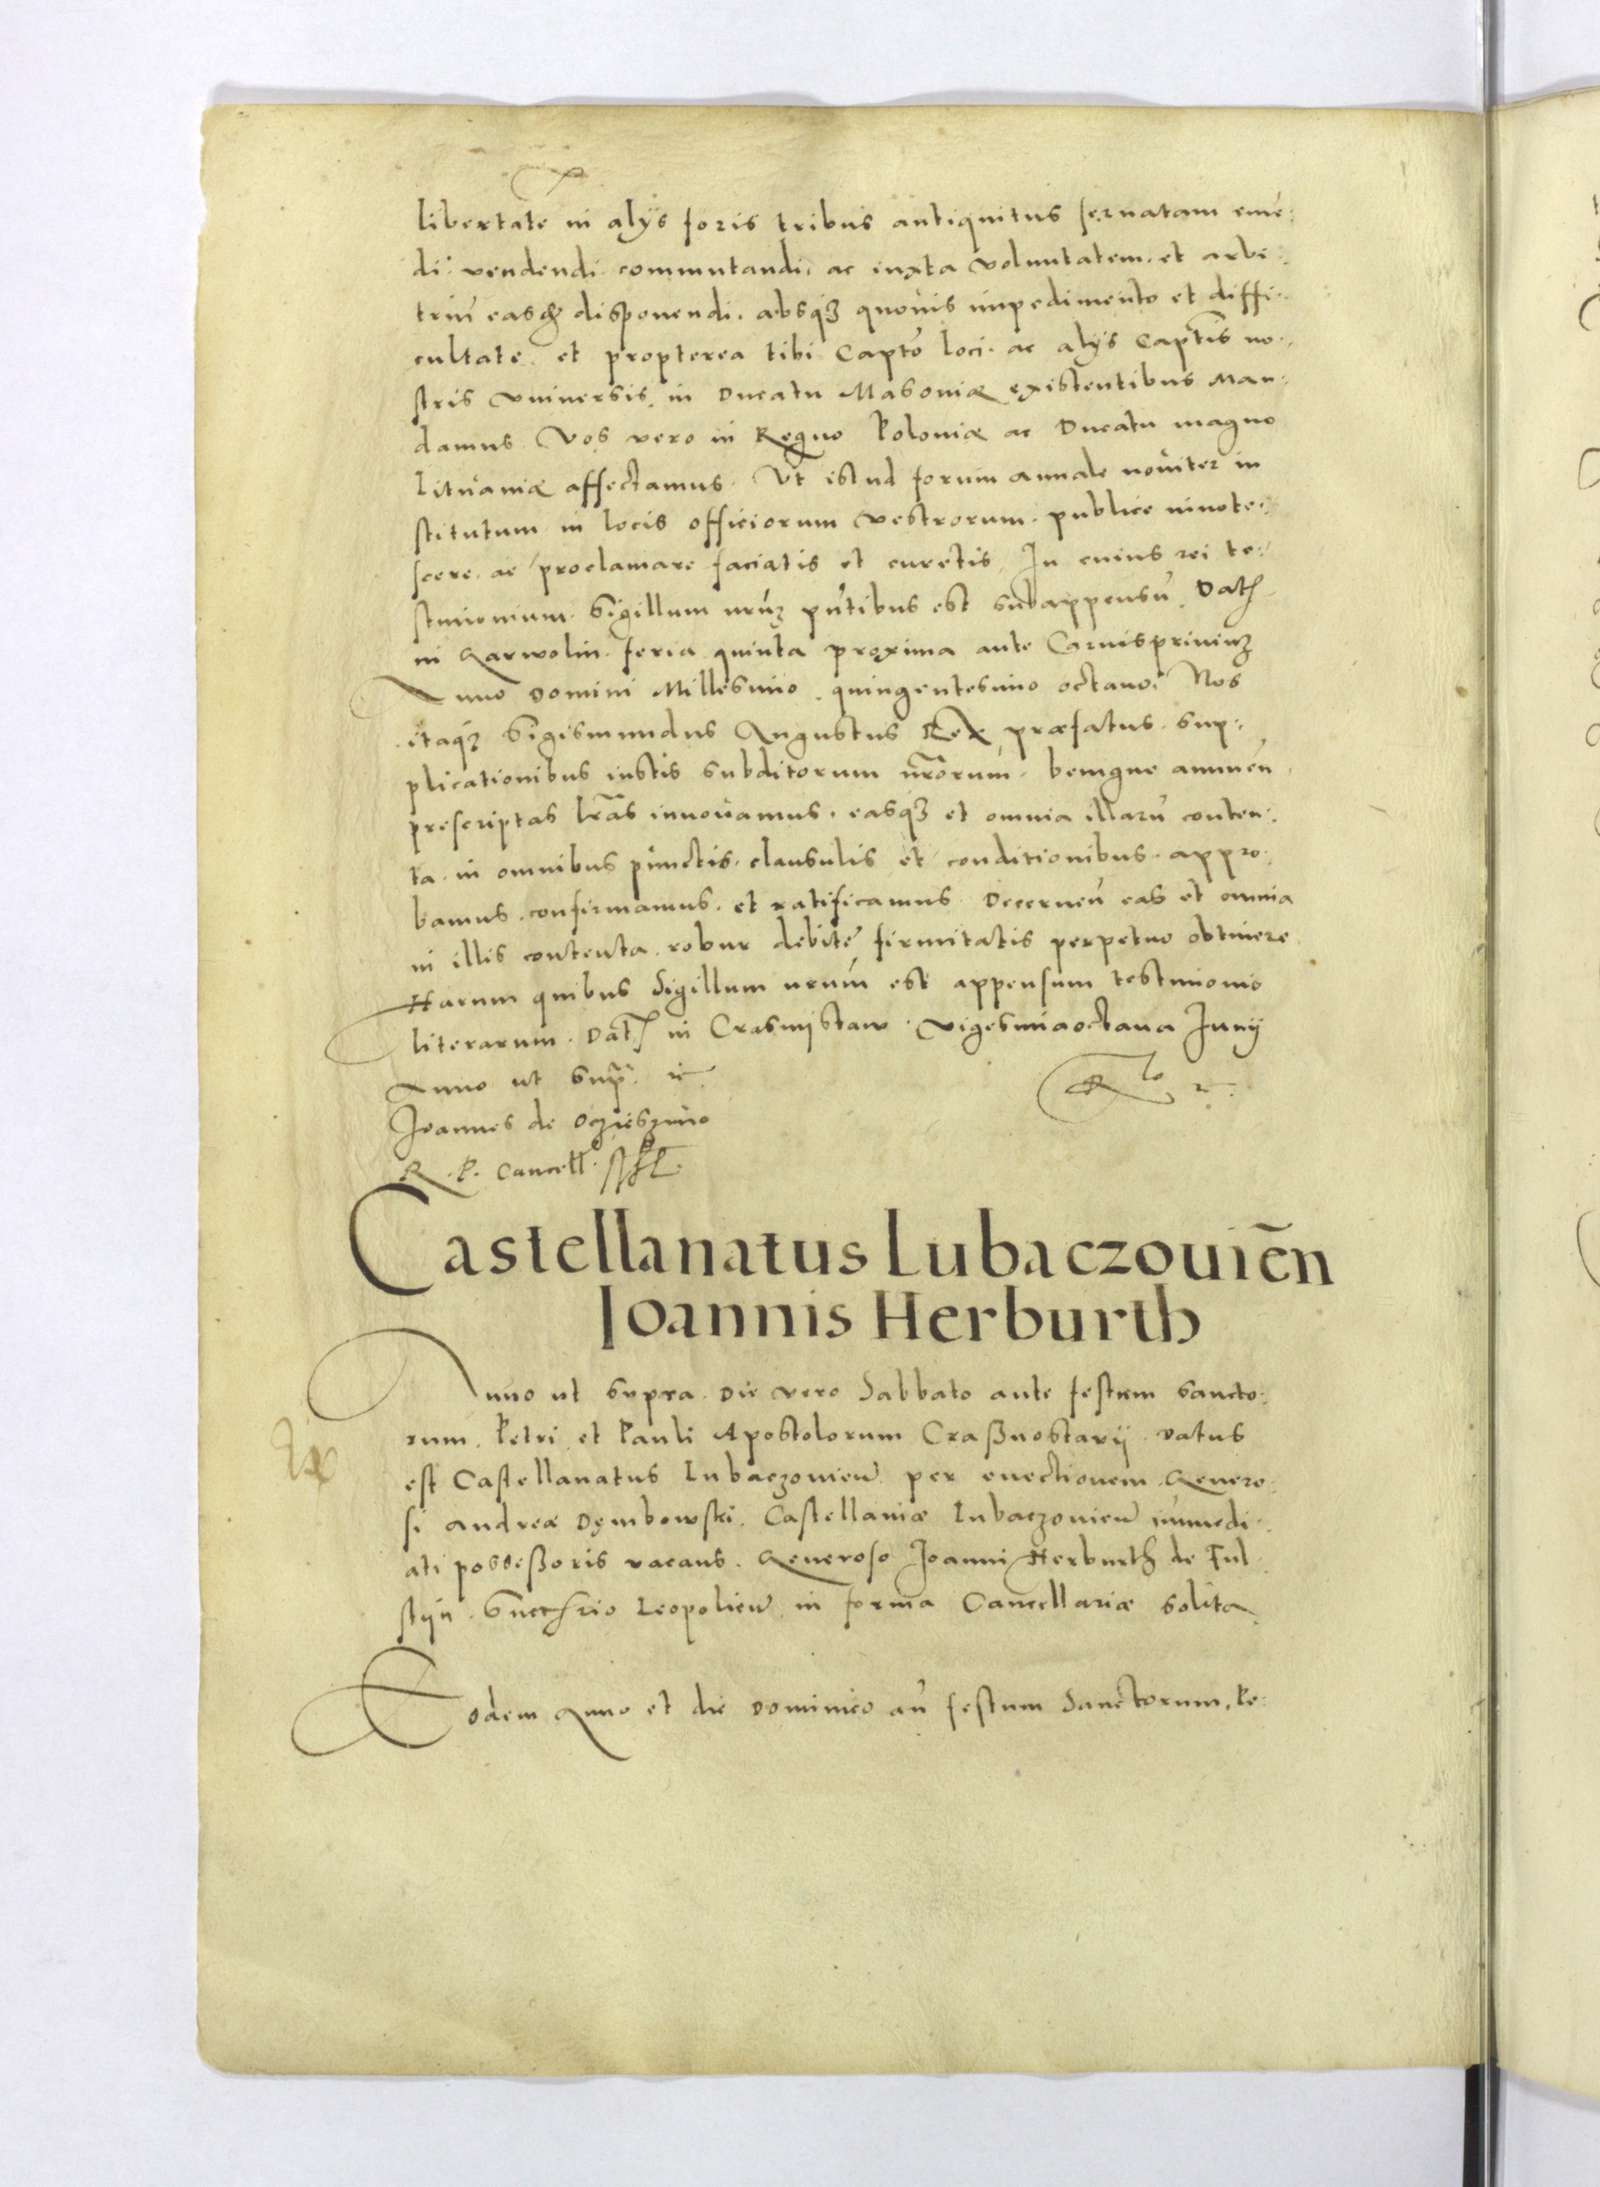 libertate in alijs foris tribus antiquitus seruatam eme:
di. vendendi. commutandi. ac iuxta voluntatem. et arbi:
triū easq3 disponendi. absq3 quouis impedimento et diffi:
cultate. et propterea tibi Captō loci. ac alijs Captīs no:
stris vniuersis in Ducatu Masouiæ existentibus Man:
damus. Vos vero in Regno Poloniæ ac Ducatu magno
Lituaniæ affectamus. Vt istud forum annale nouiter in
stitutum in locis officiorum vestrorum. publice innote:
scere. ac proclamare faciatis et curetis. In cuius rei te:
stimonium. Sigillum nrūm pn̄tibus est subappensū. Dat
in Garwolin. feria quinta proxima ante Carnispriuium
Anno Domini Millesimo quingentesimo octauo. Nos
itaq3 Sigismundus Augustus Rex præfatus. sup:
plicationibus iustis subditorum nr̄orum. benigne annuen̄
prescriptas lr̄as innouamus. easq3 et omnia illarū conten:
ta. in omnibus punctis. clausulis et conditionibus. appro:
bamus. confirmamus. et ratificamus. Decernen̄ eas et omnia
in illis contenta. robur debite firmitatis perpetuo obtinere
Harum quibus Sigillum nrum̄ est appensum testimonio
literarum. Dat in Crasnijstaw. vigesimaoctaua Iunij
Anno ut supr̄
Ioannes de Oczieszino
R. P. Cancell
Castellanatus Lubaczouien̄
Ioannis Herburth
Anno ut supra. Die vero Sabbato ante festum sancto:
rum. Petri et Pauli Apostolorum Craßnostavij. Datus
est Castellanatus Lubaczouien̄ per euectionem. Genero:
si Andreæ Dęmbowski. Castellaniæ Lubaczouien̄ immedi:
ati possessoris vacans. Generoso Ioanni Herburth de Ful
stijn. Succamerario Leopolien̄ in forma Cancellariæ solita
Eodem Anno et die Dominico an̄ festum Sanctorum. Pe: